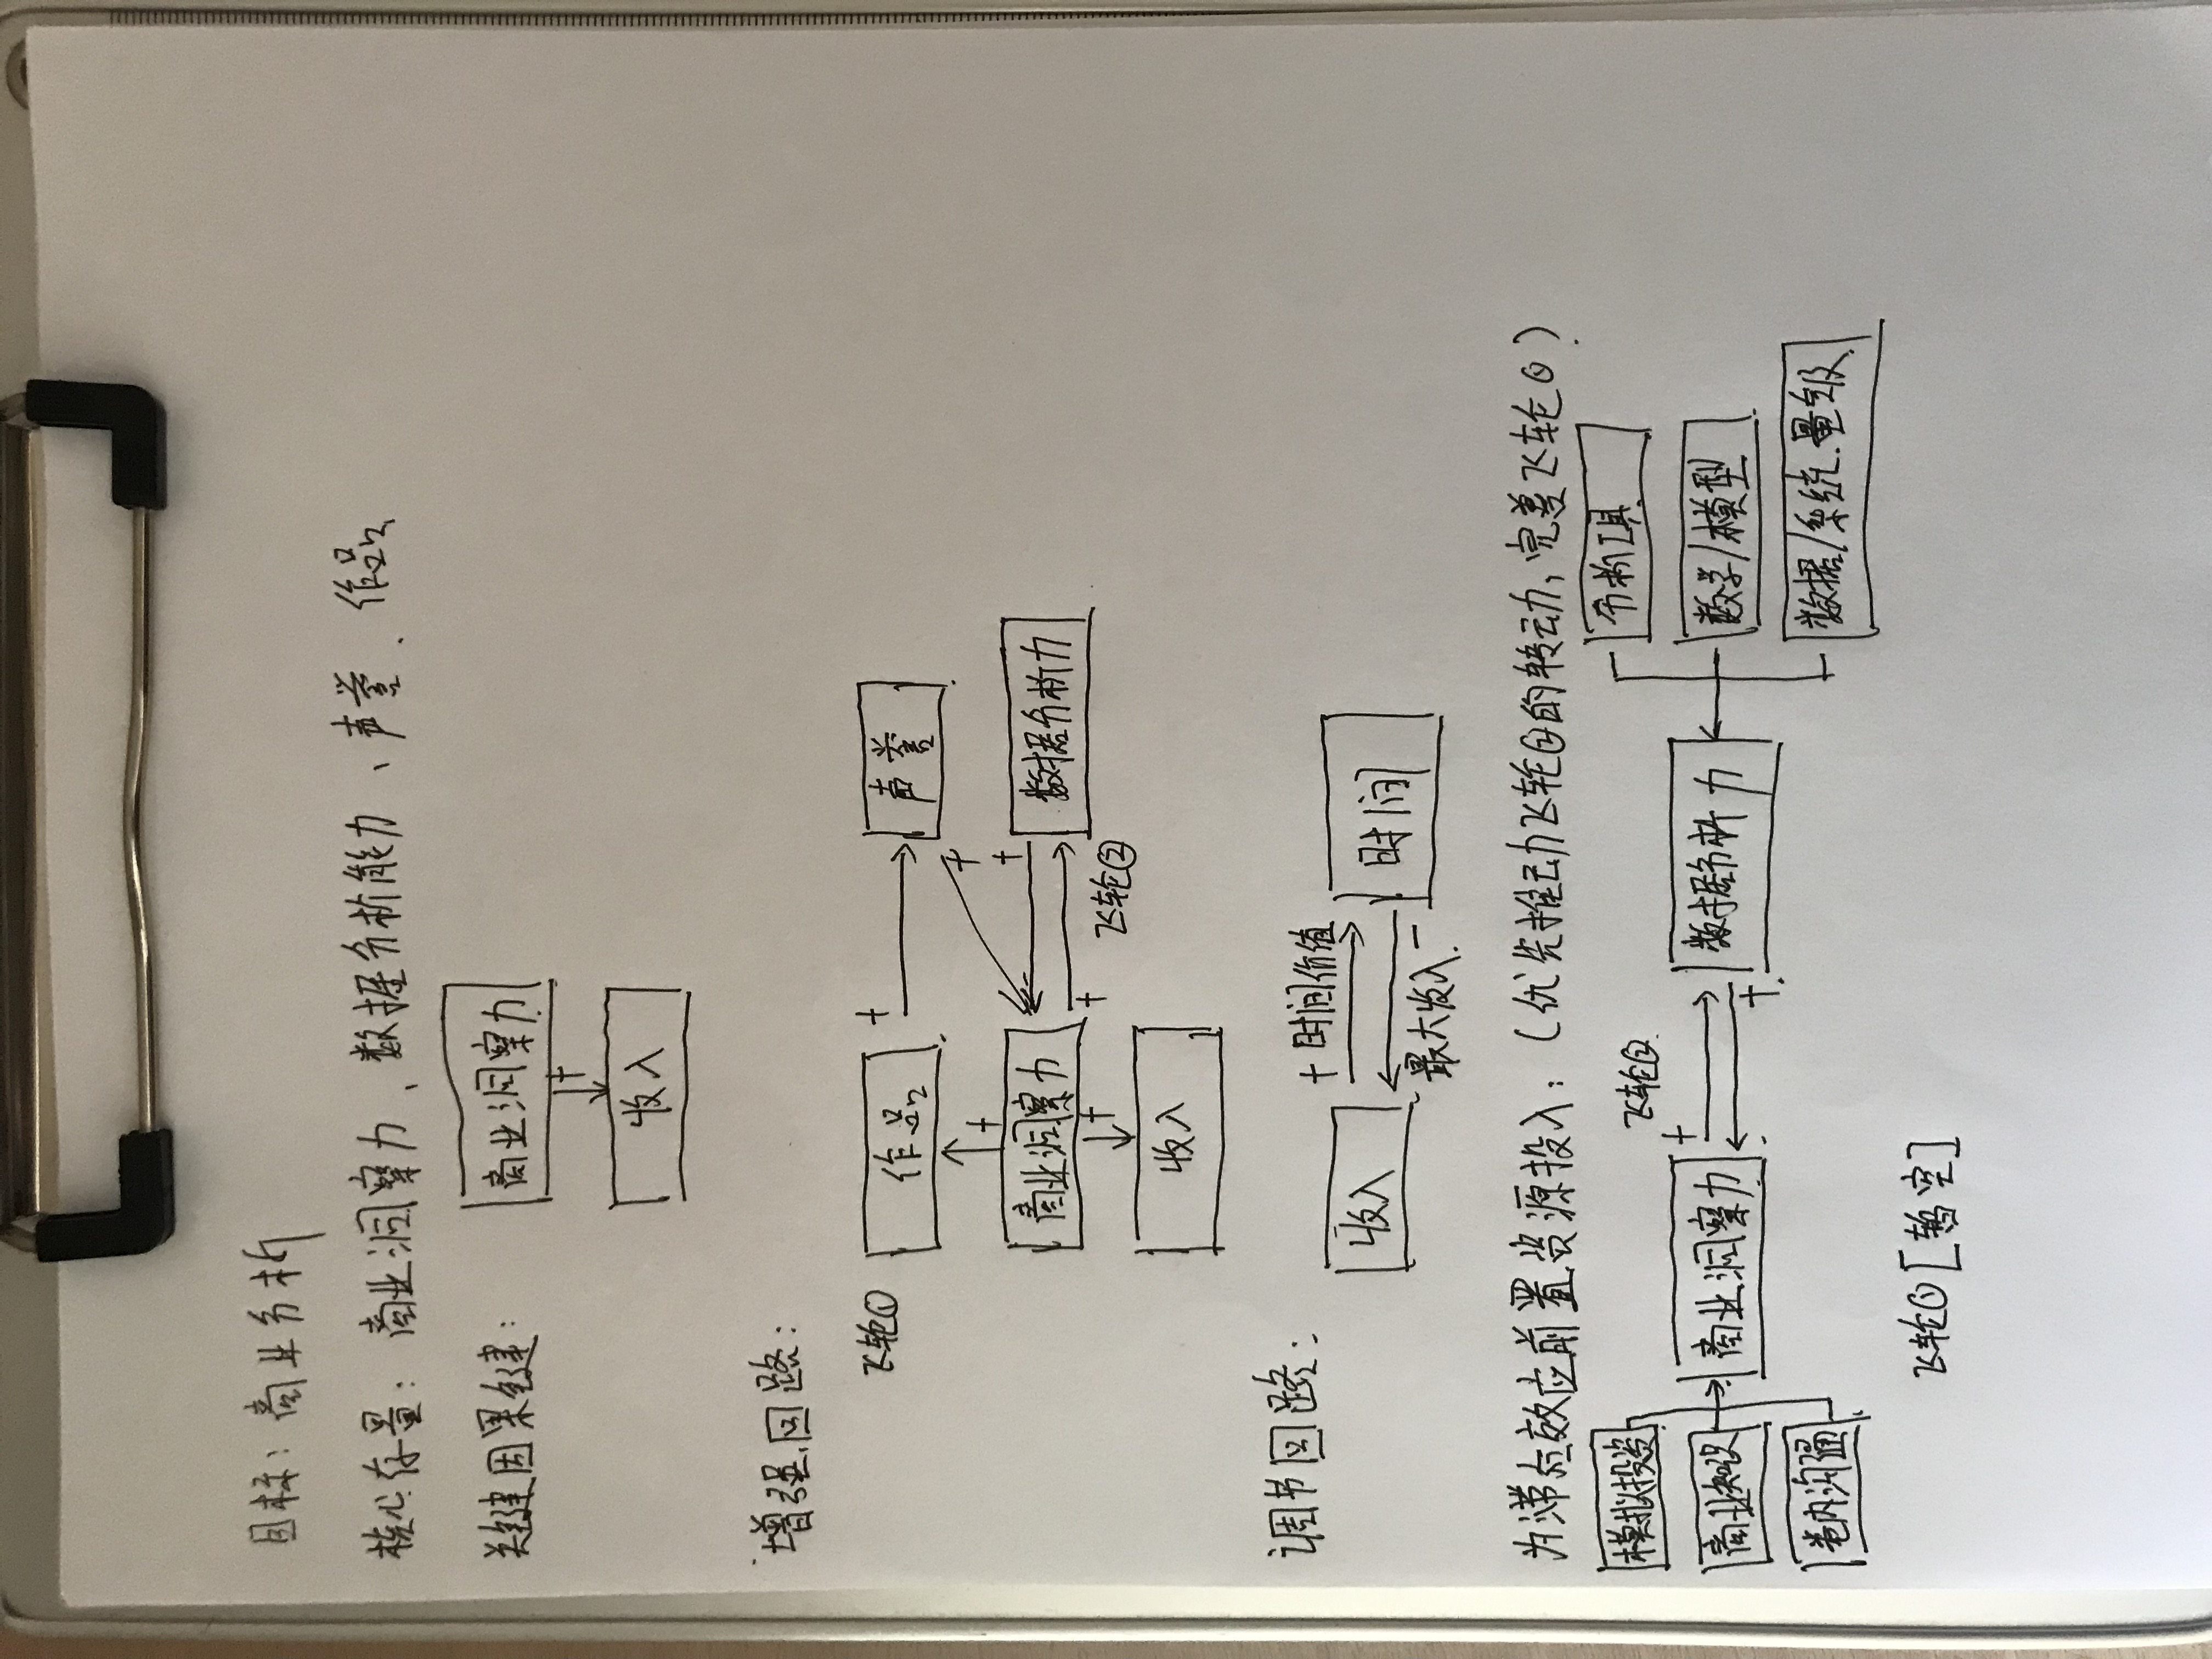 目标：商业分析
核心存量：商业洞察力、数据分析能力、声誉、作品
关键因果键：
商业洞察力
+
收入
增强回路：
飞轮①
作品
+
声誉
+
+
+
商业洞察力
数据分析力
+
+
飞轮②
收入
调节回路：
+ 时间价值
收入
时间
最大收入 -
为滞后效应前置资源投入：（优先推动飞轮②的转动，完善飞轮①）
模拟投资
分析工具
飞轮②
+
商业知识
商业洞察力
数据分析力
数学/模型
+
内沟通
数据/系统量级
飞轮①[暂空]